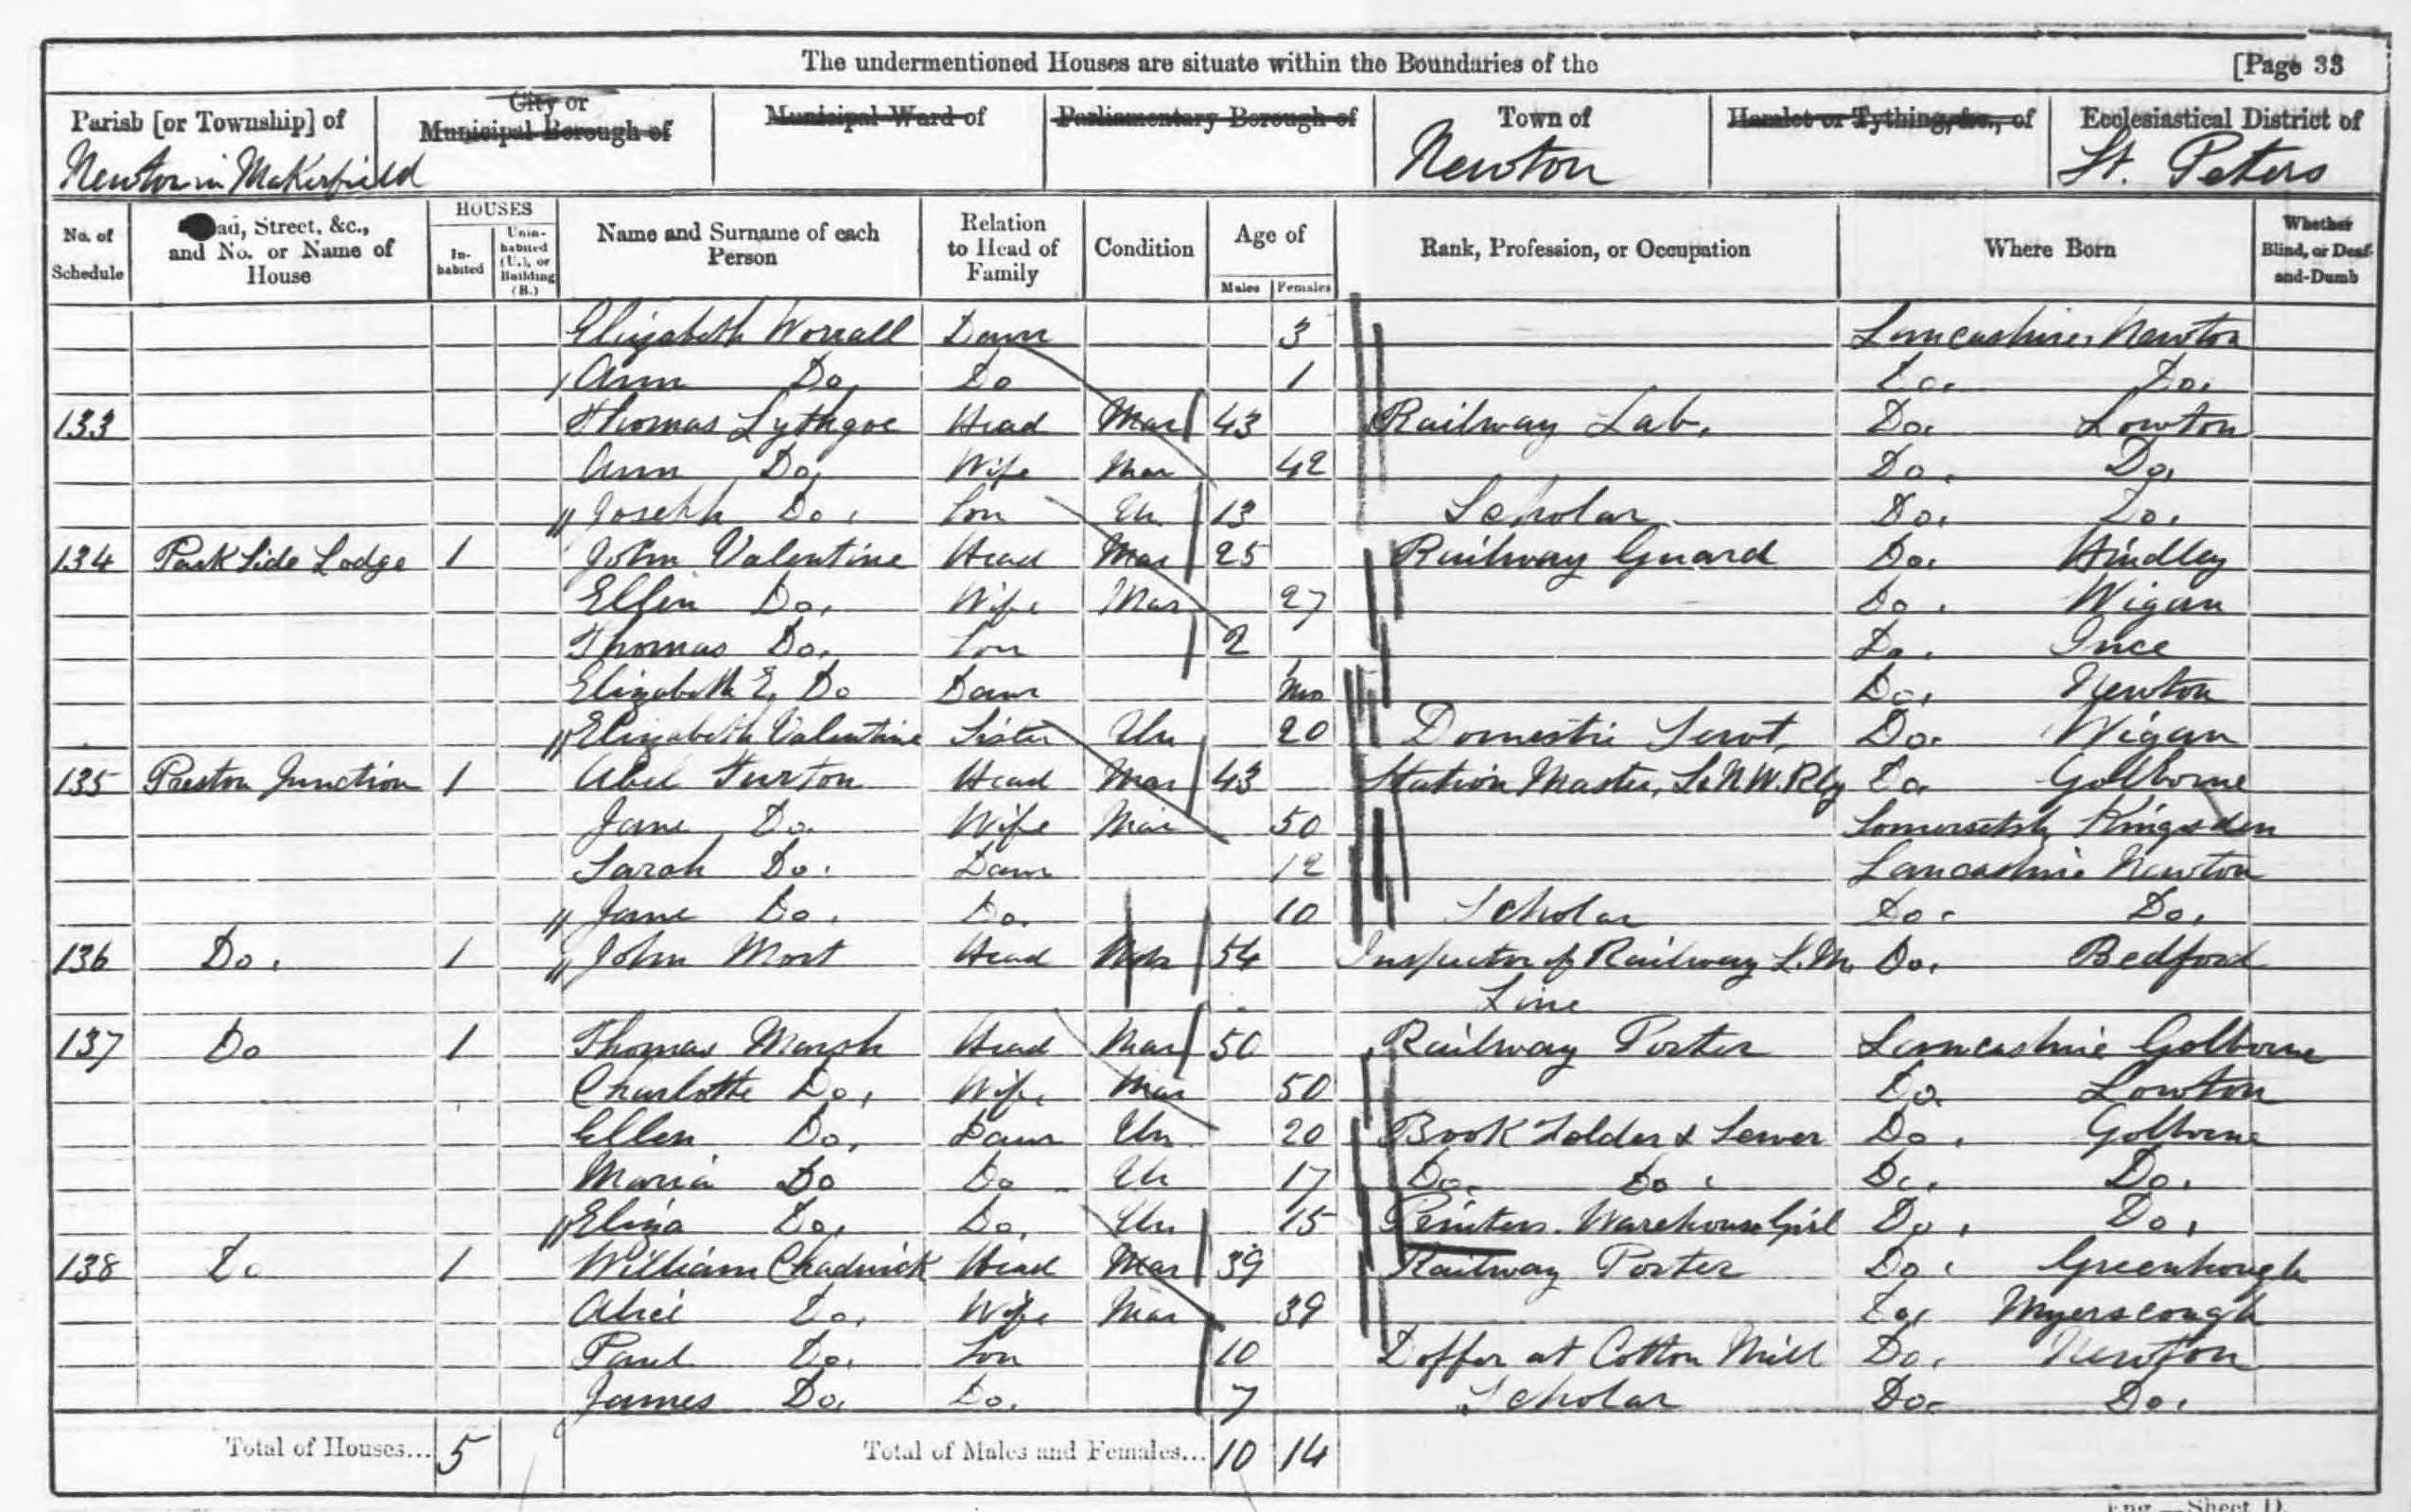 The undermentioned Houses are situate within the Boundaries of the [Page 33
Parish [or Township] of City or Municipal Borough of Municipal Ward of Parliamentary Borough of Town of Hamlet or Tything, &c., of Ecclesiastical District of
Newton in Makerfield Newton St. Peters
No. of Schedule ad, Street, &c., and No. or Name of House HOUSES In-habited Unin-habited (U.), or Building (B.) Name and Surname of each Person Relation to Head of Family Condition Age of Males Females Rank, Profession, or Occupation Where Born Whether Blind, or Deaf-and-Dumb
Elizabeth Worrall Daur 3 Lancashire, Newton
Ann Do, Do 1 Do. Do.
133 Thomas Lythgoe Head Mar 43 Railway Lab. Do. Lowton
Ann Do, Wife Mar 42 Do. Do.
Joseph Do. Son Un 13 Scholar Do. Do.
134 Park Side Lodge 1 John Valentine Head Mar 25 Railway Guard Do. Hindley
Ellin Do. Wife Mar 27 Do. Wigan
Thomas Do. Son 2 Do. Ince
Elizabeth E. Do Daur mo Do. Newton
Elizabeth Valentine Sister Un 20 Domestic Servt. Do. Wigan
135 Preston Junction 1 Abel Turton Head Mar 43 Station Master, L&N.W.Rly Do. Golborne
Jane Do. Wife Mar 50 Somersetsh Kingsden
Sarah Do. Daur 12 Lancashire Newton
Jane Do. Do. 10 Scholar Do. Do.
136 Do. 1 John Mort Head 54 Inspector of Railway L.M. Do. Bedford
Line
137 Do 1 Thomas Marsh Head Mar 50 Railway Porter Lancashire Golborne
Charlotte Do. Wife Mar 50 Do. Lowton
Ellen Do. Daur Un 20 Book Folder & Sewer Do. Golborne
Maria Do Do Un 17 Do. Do. Do. Do.
Eliza Do. Do. Un 15 Printers Warehouse Girl Do. Do.
138 Do 1 William Chadwick Head Mar 39 Railway Porter Do. Greenhough
Alice Do. Wife Mar 39 Do. Myerscough
Paul Do. Son 10 Doffer at Cotton Mill Do. Newton
James Do. Do. 7 Scholar Do. Do.
Total of Houses... 5 Total of Males and Females... 10 14
Eng.—Sheet D.